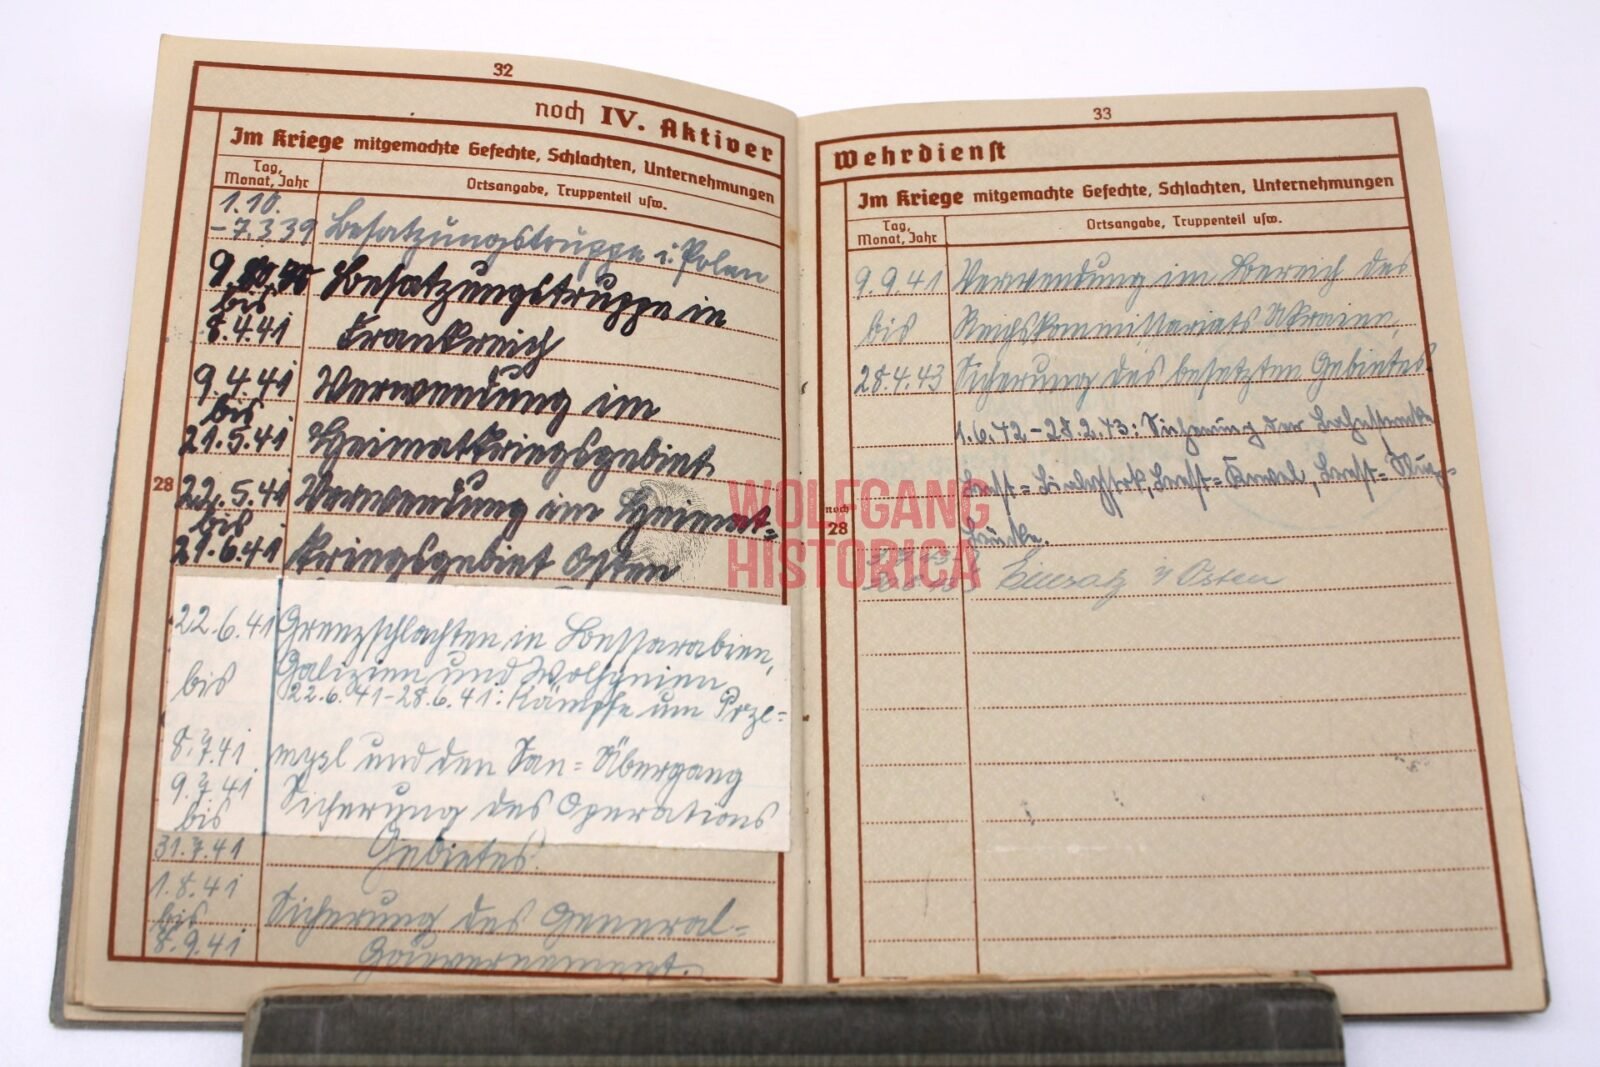 32
noch IV. Aktiver
Im Kriege mitgemachte Gefechte, Schlachten, Unternehmungen
Tag, Monat, Jahr
Ortsangabe, Truppenteil usw.
1.10.
Besatzungstruppe i. Polen
9.
Besatzungstruppe in
bis
8.4.41 Frankreich
9.4.41 Verwendung im
bis
21.5.41 Heimatkriegsgebiet
28
22.5.41 Verwendung im Heimat-
bis
21.6.41 kriegsgebiet Osten
22.6.41 Grenzschlachten in Bessarabien,
Galizien und Wolhynien
bis
22.6.41-28.6.41: Kämpfe um Prze=
8.7.41 mysl und den San=Übergang
9.7.41 Sicherung des Operations
bis
31.7.41 Gebietes.
1.8.41
bis Sicherung des General=
8.9.41 Gouvernement.
33
Wehrdienst
Im Kriege mitgemachte Gefechte, Schlachten, Unternehmungen
Tag, Monat, Jahr
Ortsangabe, Truppenteil usw.
9.9.41 Verwendung im Bereich des
bis Reichskommissariats Ukraine,
28.4.43 Sicherung des besetzten Gebietes.
1.6.42-28.2.43: Sicherung der
Brest= Brest=Kowel, Brest=
noch
28
Einsatz i Osten
WOLFGANG
HISTORICA